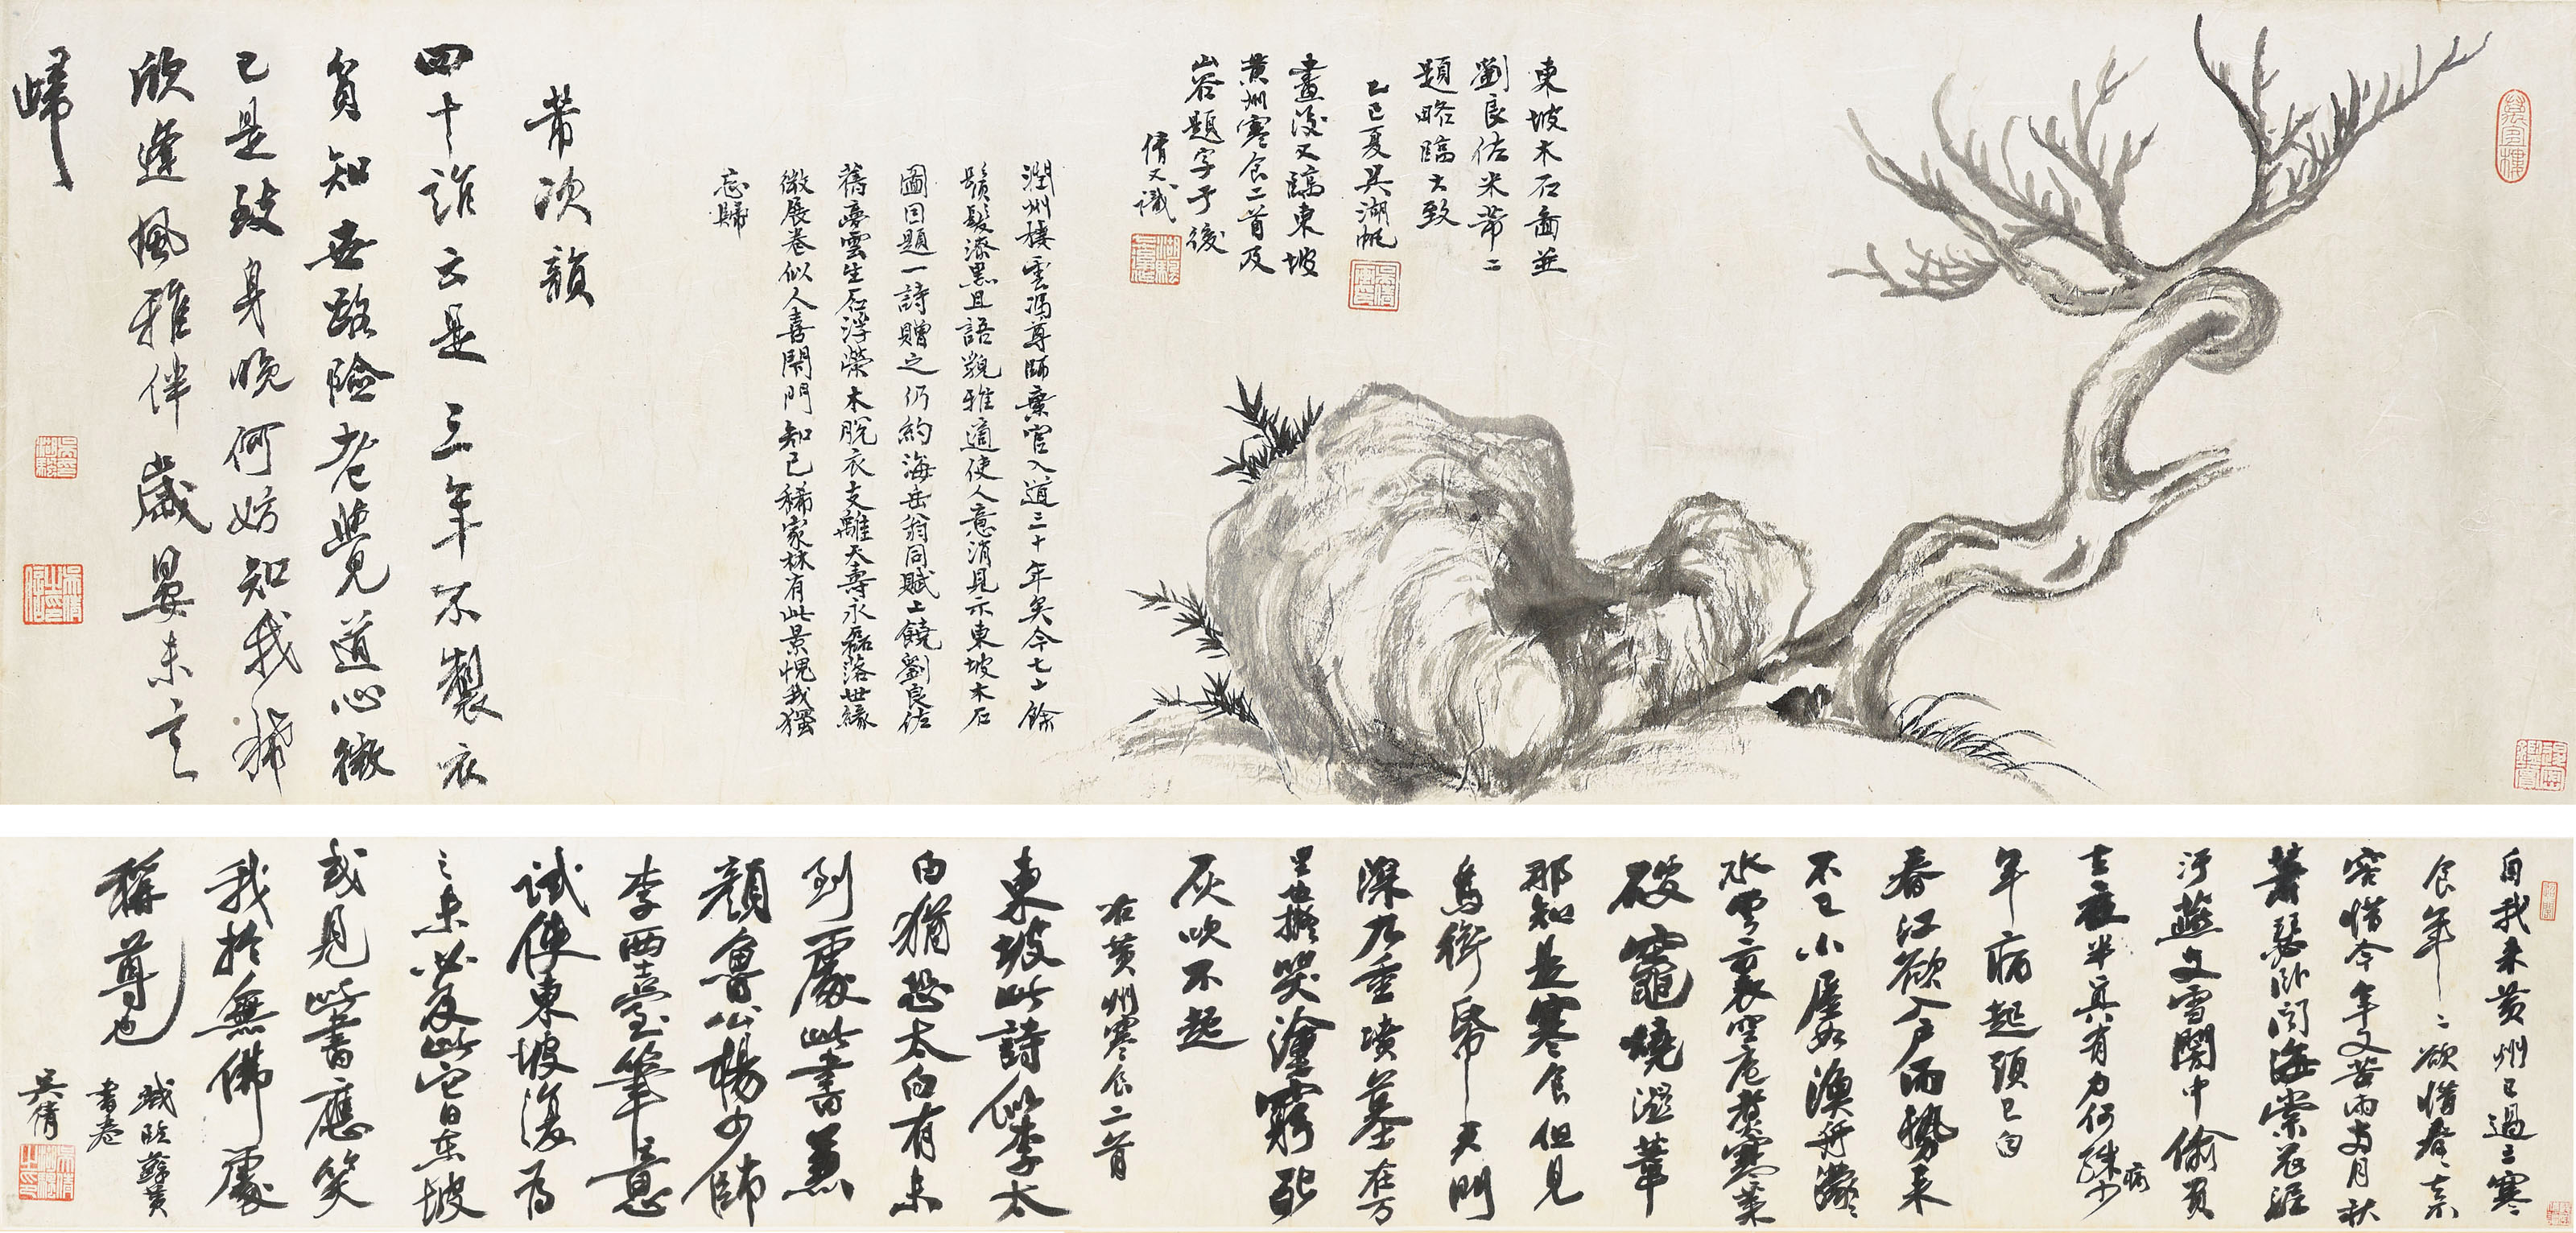 東坡木石圖並
劉良佐米芾二
題略臨大致
乙巳夏吳湖帆
畫後又臨東坡
黃州寒食二首及
山谷題字于後
倩又識
潤州棲雲馮尊師棄官入道三十年矣今七十餘
鬚髮漆黑且語貌雅適使人意消見示東坡木石
圖因題一詩贈之仍約海岳翁同賦上饒劉良佐
舊夢雲生石浮榮木脫衣支離天壽永磊落世緣
微展卷似人喜閉門知己稀家林有此景愧我獨
忘歸
芾次韻
四十誰云是三年不製衣
貧知世路險老覺道心微
已是致身晚何妨知我稀
欣逢風雅伴歲晏未言
歸
自我來黃州已過三寒
食年年欲惜春春去不
容惜今年又苦雨兩月秋
蕭瑟臥聞海棠花泥
汙燕支雪闇中偷負
去夜半真有力何殊少
病
年病起頭已白
春江欲入戶雨勢來
不已小屋如漁舟濛濛
水雲裏空庖煮寒菜
破竈燒溼葦
那知是寒食但見
烏銜帋君門
深九重墳墓在万
里也擬哭塗窮死
灰吹不起
右黃州寒食二首
東坡此詩似李太
白猶恐太白有未
到處此書兼
顏魯公楊少師
李西臺筆意
試使東坡復為
之未必及此它日東坡
或見此書應笑
我於無佛處
稱尊也
戲臨蘇黃
書卷
吳倩